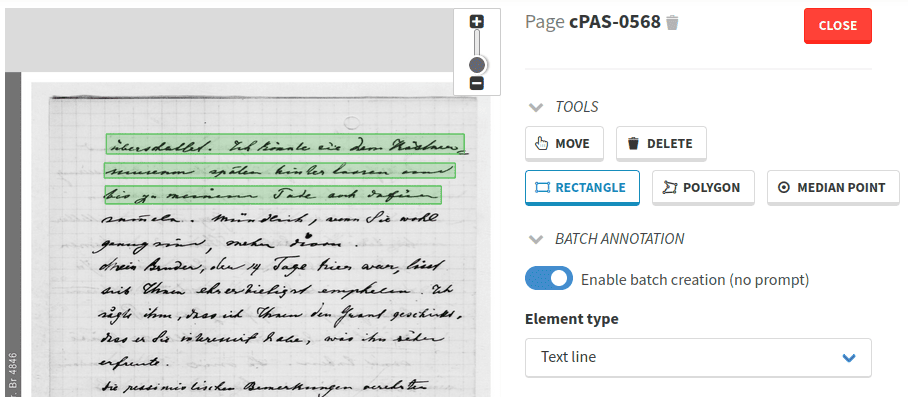 Page cPAS-0568
CLOSE
TOOLS
MOVE
DELETE
RECTANGLE
POLYGON
MEDIAN POINT
BATCH ANNOTATION
Enable batch creation (no prompt)
Element type
Text line
Br 4846
überschattet. Ich könnte sie dem
museum später hinterlassen und
bis zu meinem Tode noch dafür
sammeln. Mündlich, wenn Sie wohl
genug sind, mehr davon.
Mein Bruder, der 14 Tage hier war, lässt
sich Ihnen ehrerbietigst empfehlen. Ich
sagte ihm, dass ich Ihnen den Grant geschickt,
dass er Sie interessirt habe, was ihn sehr
erfreute.
Die pessimistischen Bemerkungen verehrter